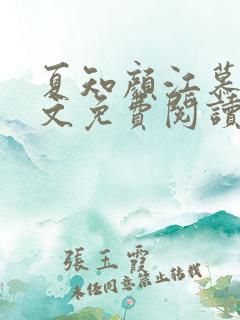 夏知顏江慕
文免費閱讀
張玉霞
未經同意禁止轉載